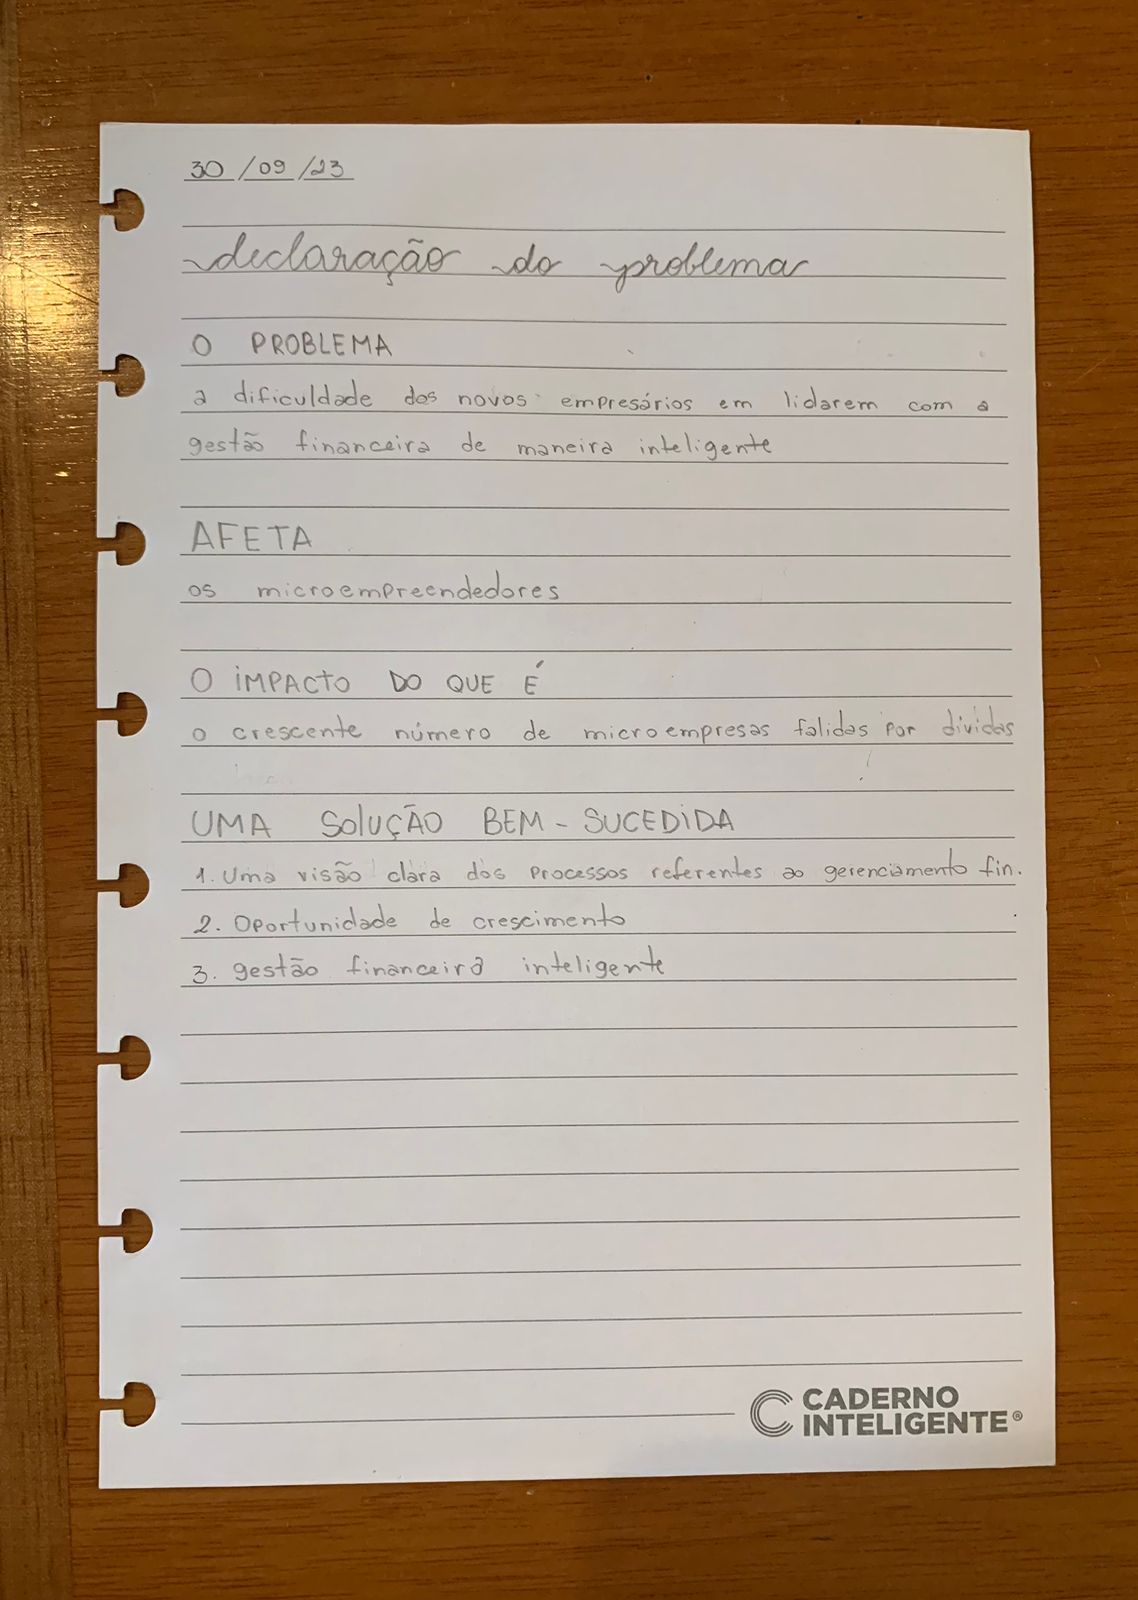 30/09/23
declaração do problema
O PROBLEMA
a dificuldade dos novos empresários em lidarem com a
gestão financeira de maneira inteligente
AFETA
os microempreendedores
O IMPACTO DO QUE É
o crescente número de microempresas falidas por dívidas
UMA SOLUÇÃO BEM-SUCEDIDA
1. Uma visão clara dos processos referentes ao gerenciamento fin.
2. Oportunidade de crescimento
3. gestão financeira inteligente
CADERNO
INTELIGENTE®